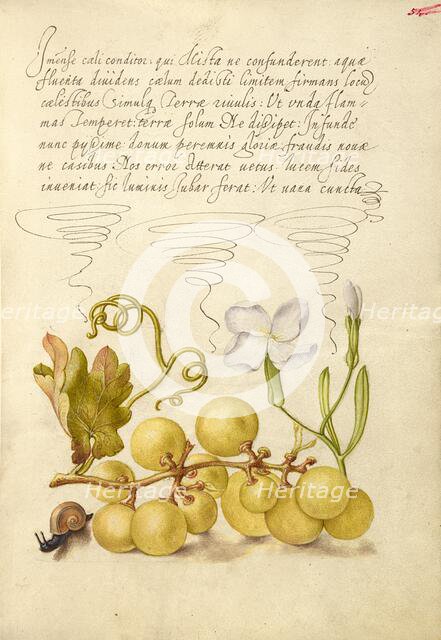 Imẽnse cæli conditor: qui Mista ne confunderent: aquæ
fluenta diuidens cælum dedisti limitem firmans locũ
cælestibus Simulq̃ Terræ riuulis: Vt vnda flam–
mas Temperet: terræ solum Ne dissipet: Infunde
nunc pijssime: donum perennis gloriæ fraudis nouæ
ne casibus: Nos error atterat vetus: Lucem fides
inueniat: sic luminis Iubar ferat: Vt uana cuncta
Heritage
Heritage
Heritage
Heritage
Heritage
Heritage